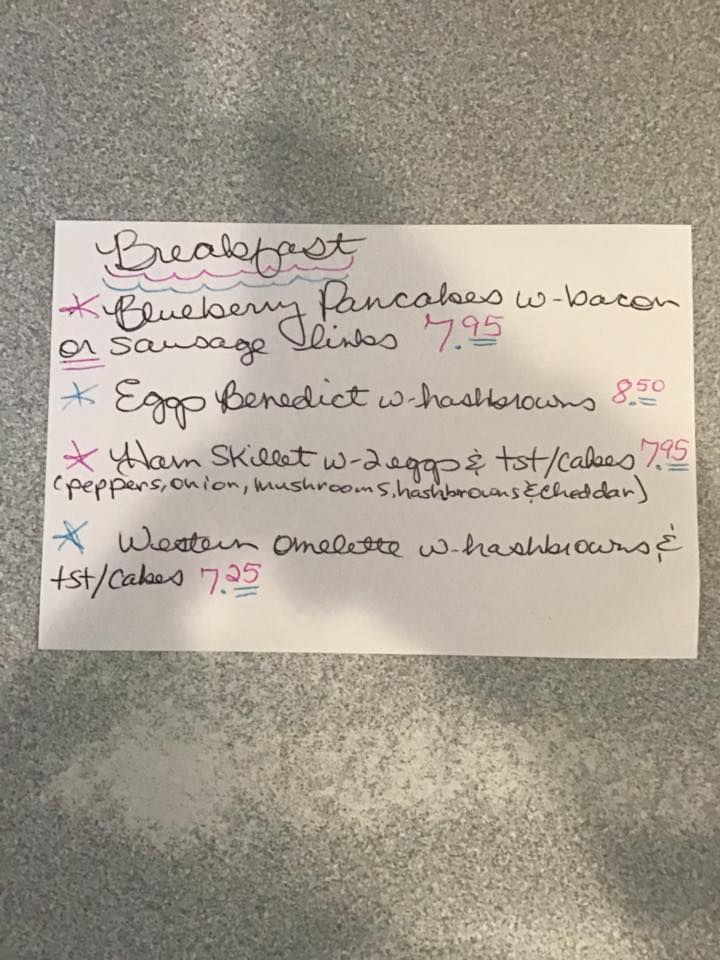 Breakfast
* Blueberry Pancakes w-bacon
or sausage links 7.95
* Eggs Benedict w-hashbrowns 8.50
* Ham Skillet w-2 eggs & tst/cakes 7.95
(peppers, onion, mushrooms, hashbrowns & cheddar)
* Western Omelette w-hashbrowns &
tst/cakes 7.25